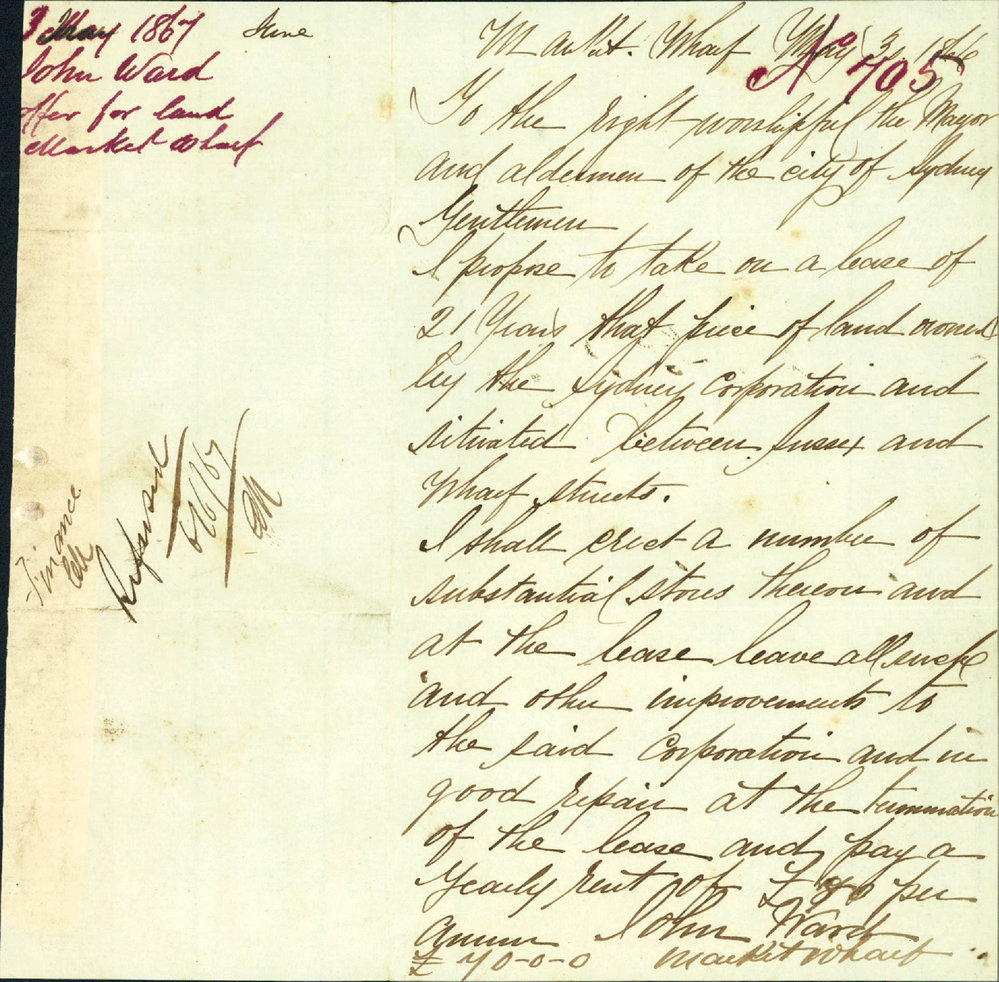 3 May 1867 June
John Ward
offer for land
Market Wharf
Finance
Refused
6/6/67
No 705
Markit. Wharf May 3
To the right worshipful the Mayor
and aldermen of the city of Sydney
Gentlemen
I propose to take on a lease of
21 Years that piece of land owned
by the Sydney Corporation and
situated between Sussex and
Wharf streets.
I shall erect a number of
substantial stores thereon and
at the lease leave all such
and other improvements to
the said Corporation and in
good repair at the termination
of the lease and pay a
Yearly rent of £ per
annum John Ward
£ 70-0-0 Market Wharf